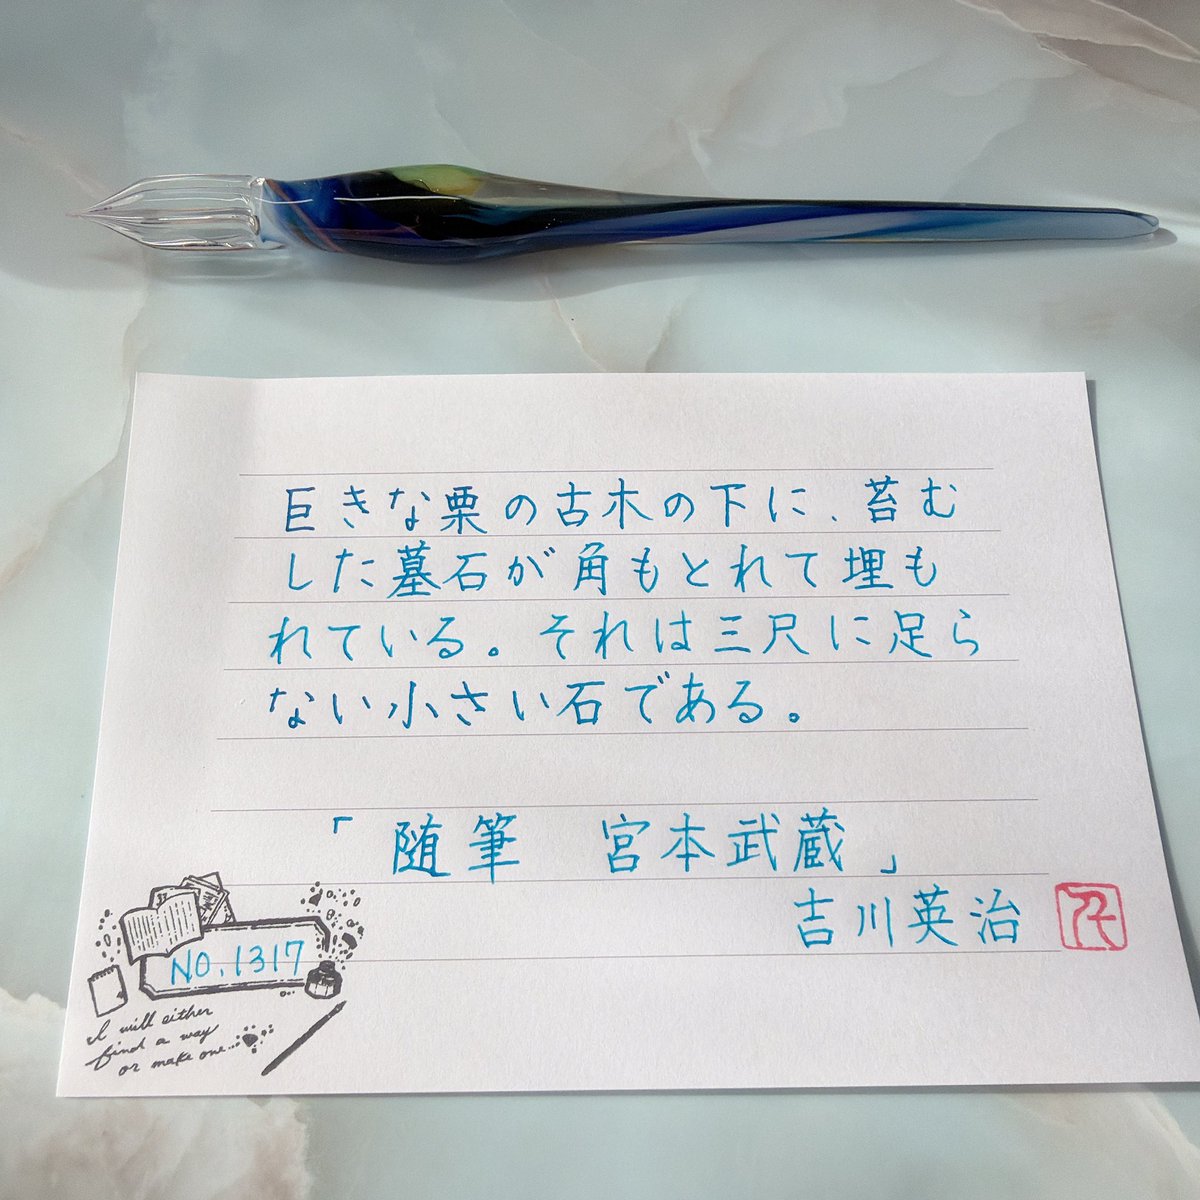 巨きな栗の古木の下に、苔む
した墓石が角もとれて埋も
れている。それは三尺に足ら
ない小さい石である。
「随筆　宮本武蔵」
吉川英治
NO.1317
I will either
find a way
or make one...